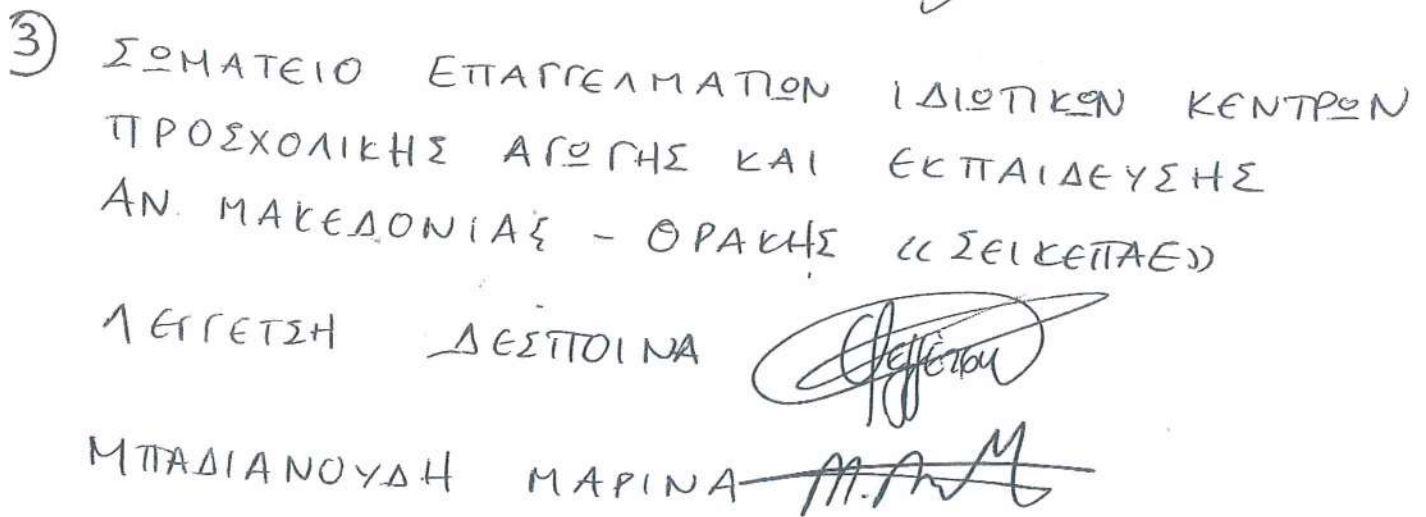 ③ ΣΩΜΑΤΕΙΟ ΕΠΑΓΓΕΛΜΑΤΙΩΝ ΙΔΙΩΤΙΚΩΝ ΚΕΝΤΡΩΝ
ΠΡΟΣΧΟΛΙΚΗΣ ΑΓΩΓΗΣ ΚΑΙ ΕΚΠΑΙΔΕΥΣΗΣ
ΑΝ. ΜΑΚΕΔΟΝΙΑΣ - ΘΡΑΚΗΣ «ΣΕΙΚΕΠΑΕ»
ΛΕΓΓΕΤΣΗ ΔΕΣΠΟΙΝΑ
ΜΠΑΔΙΑΝΟΥΔΗ ΜΑΡΙΝΑ